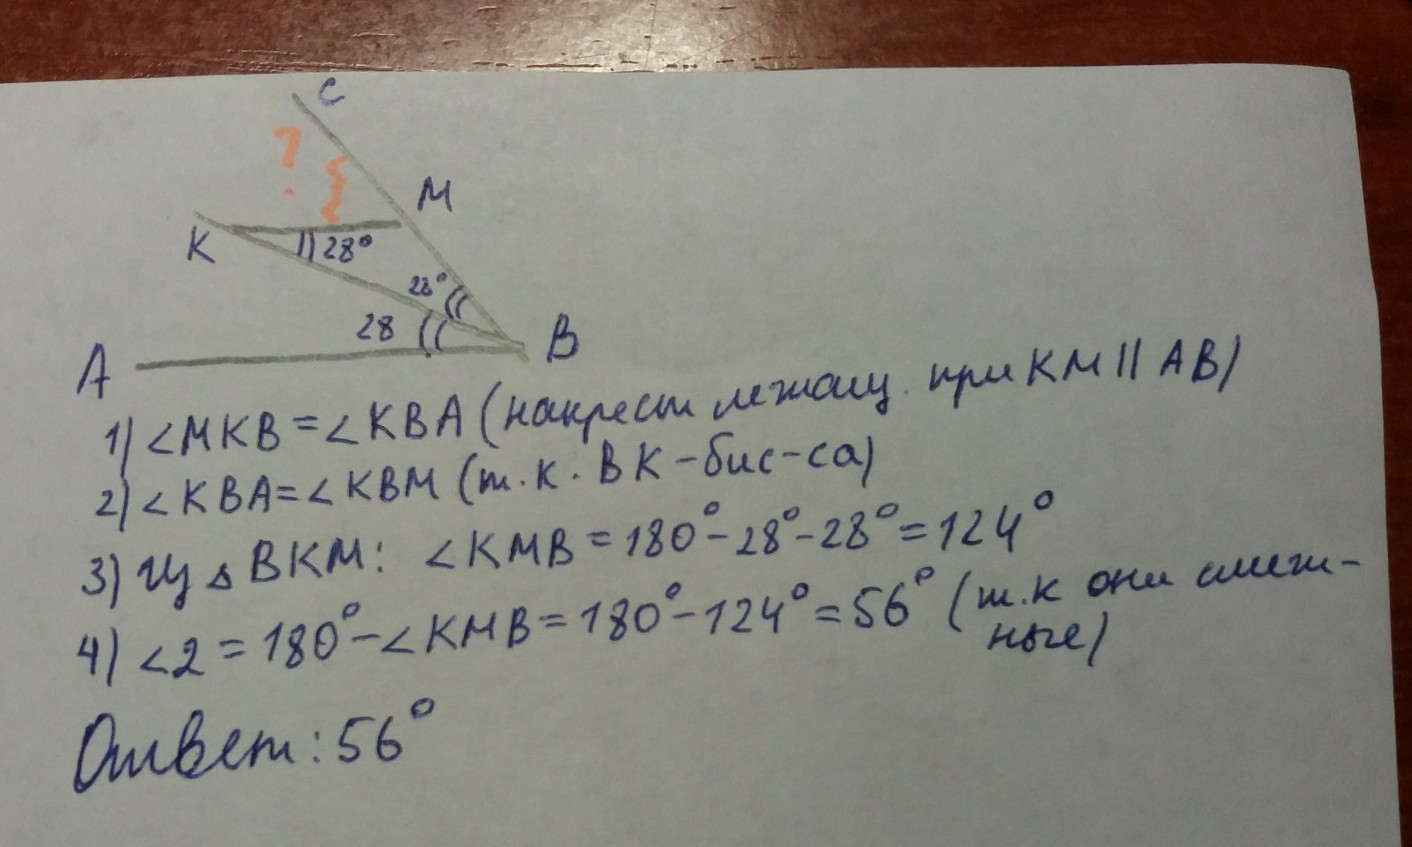 C
?
M
K
28°
28°
28
A
B
1) ∠MKB = ∠KBA (накрест лежащ. при KM || AB)
2) ∠KBA = ∠KBM (т.к. BK - бис-са)
3) Из △ BKM: ∠KMB = 180° - 28° - 28° = 124°
4) ∠2 = 180° - ∠KMB = 180° - 124° = 56° (т.к они смеж-
ные)
Ответ: 56°